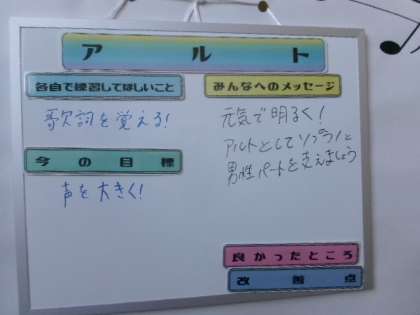 アルト
各自で練習してほしいこと
歌詞を覚える!
今の目標
声を大きく!
みんなへのメッセージ
元気で明るく!
アルトとしてソプラノと
男性パートを支えましょう
良かったところ
改善点